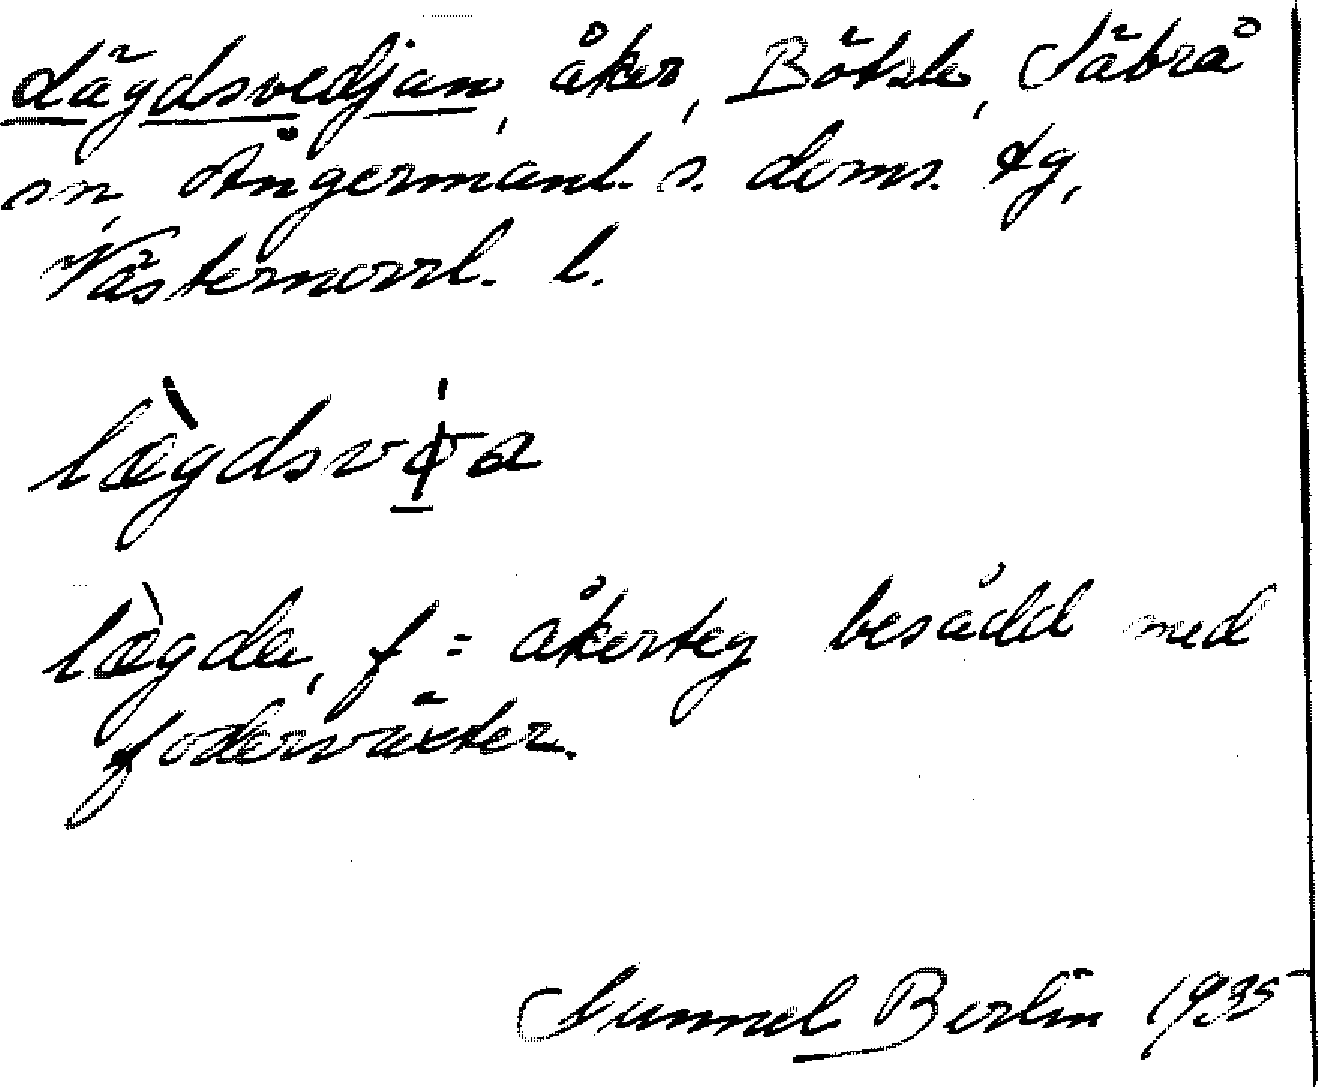 Lägdsvedjan, åker, Bötsle, Säbrå
sn, Ångermanl. s. doms. tg,
Västernorrl. l.
lægda, f = åkerteg besådd med
foderväxter.
Gunnel Berlin 1935